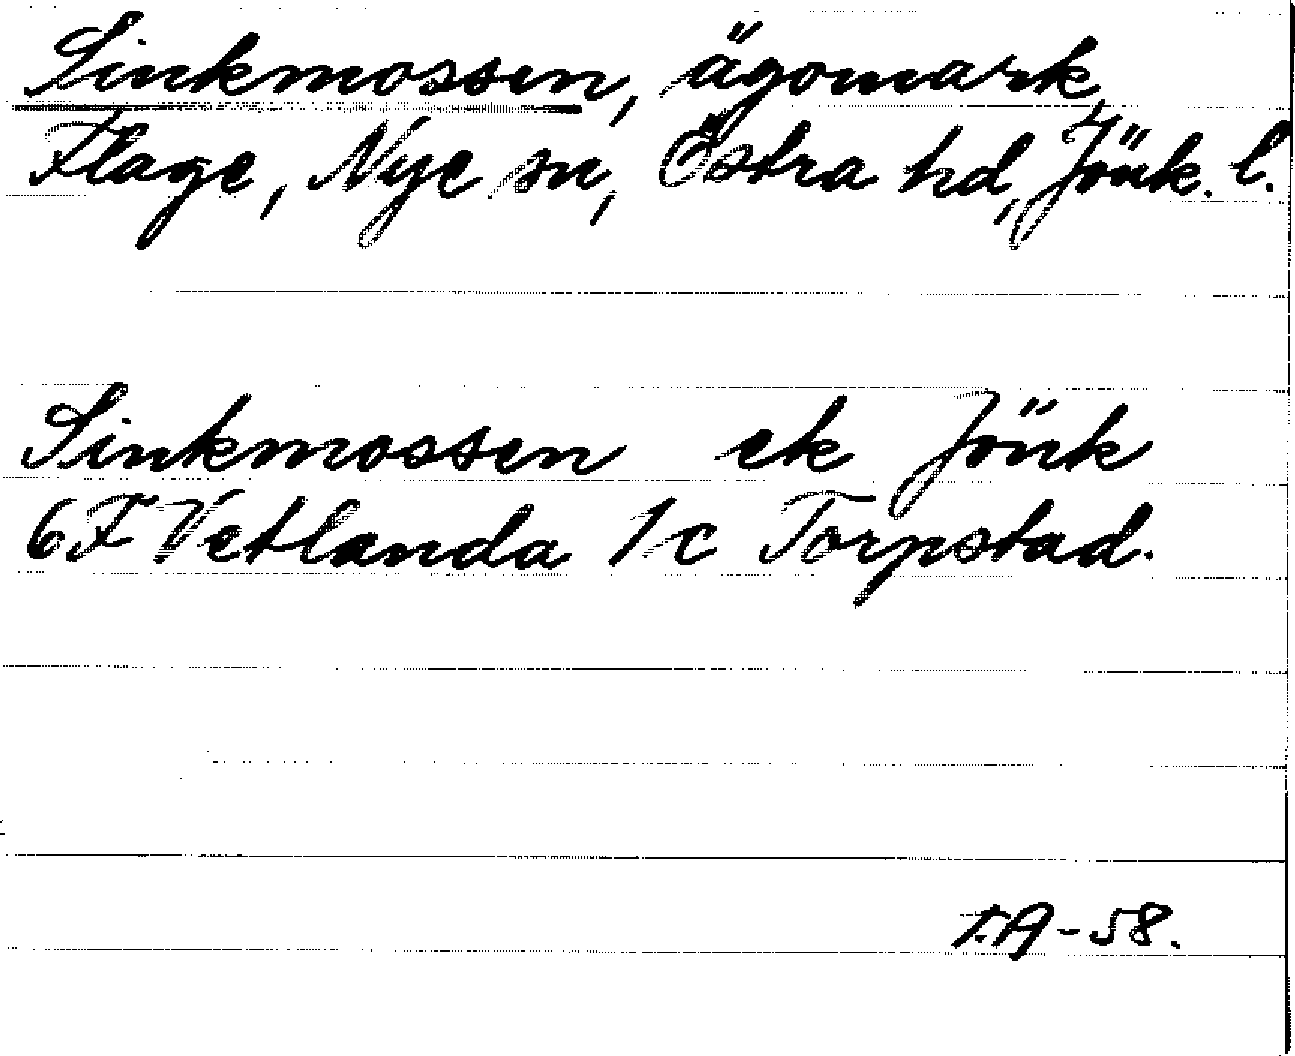 Sinkmossen, ägomark,
Flage, Nye sn, Östra hd, Jönk. l.
Sinkmossen ek Jönk
6F Vetlanda 1c Torpstad.
F.A-58.